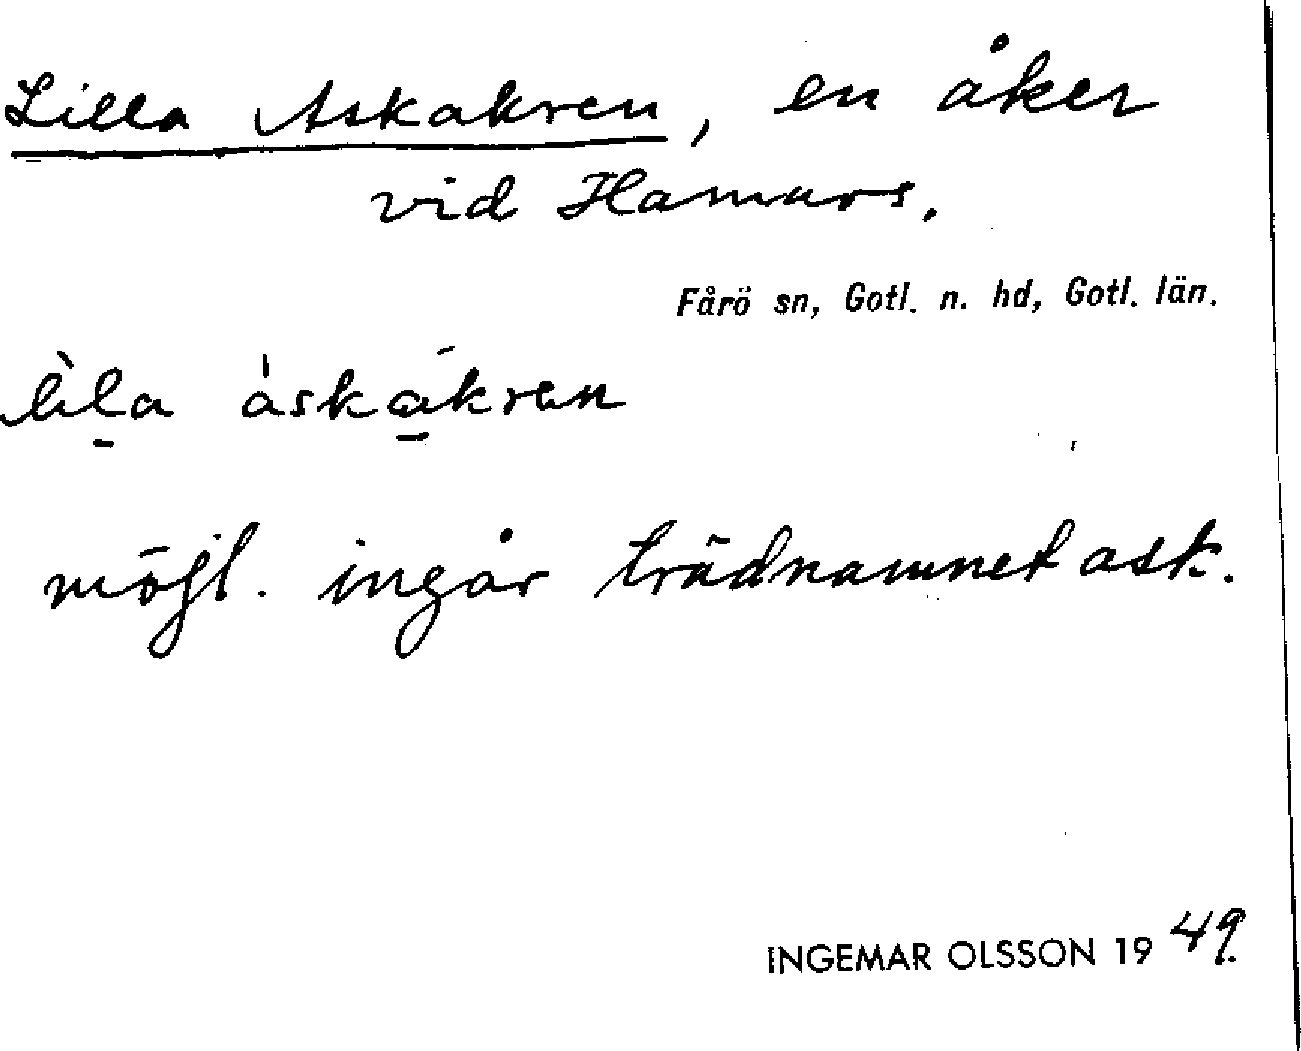 Lilla Askakren, en åker
vid Hamnars.
Fårö sn, Gotl. n. hd, Gotl. län.
lìl̠a áska̠̍kren
möjl. ingår trädnamnet ask.
INGEMAR OLSSON 1949.